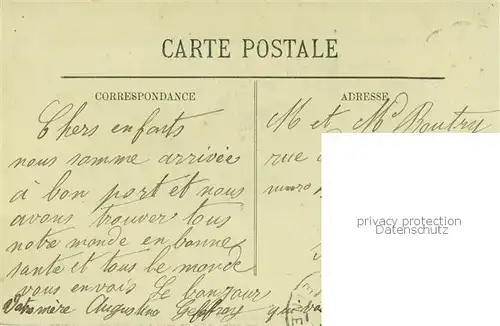 CARTE POSTALE
CORRESPONDANCE
Chers enfants
nous somme arrivée
à bon port et nous
avons trouver tous
notre monde en bonne
sante et tous le monde
vous envois le bonjour
Votre mère Augustine Geffroy
ADRESSE
M et Md Boutry
rue
numro
qui
privacy protection
Datenschutz